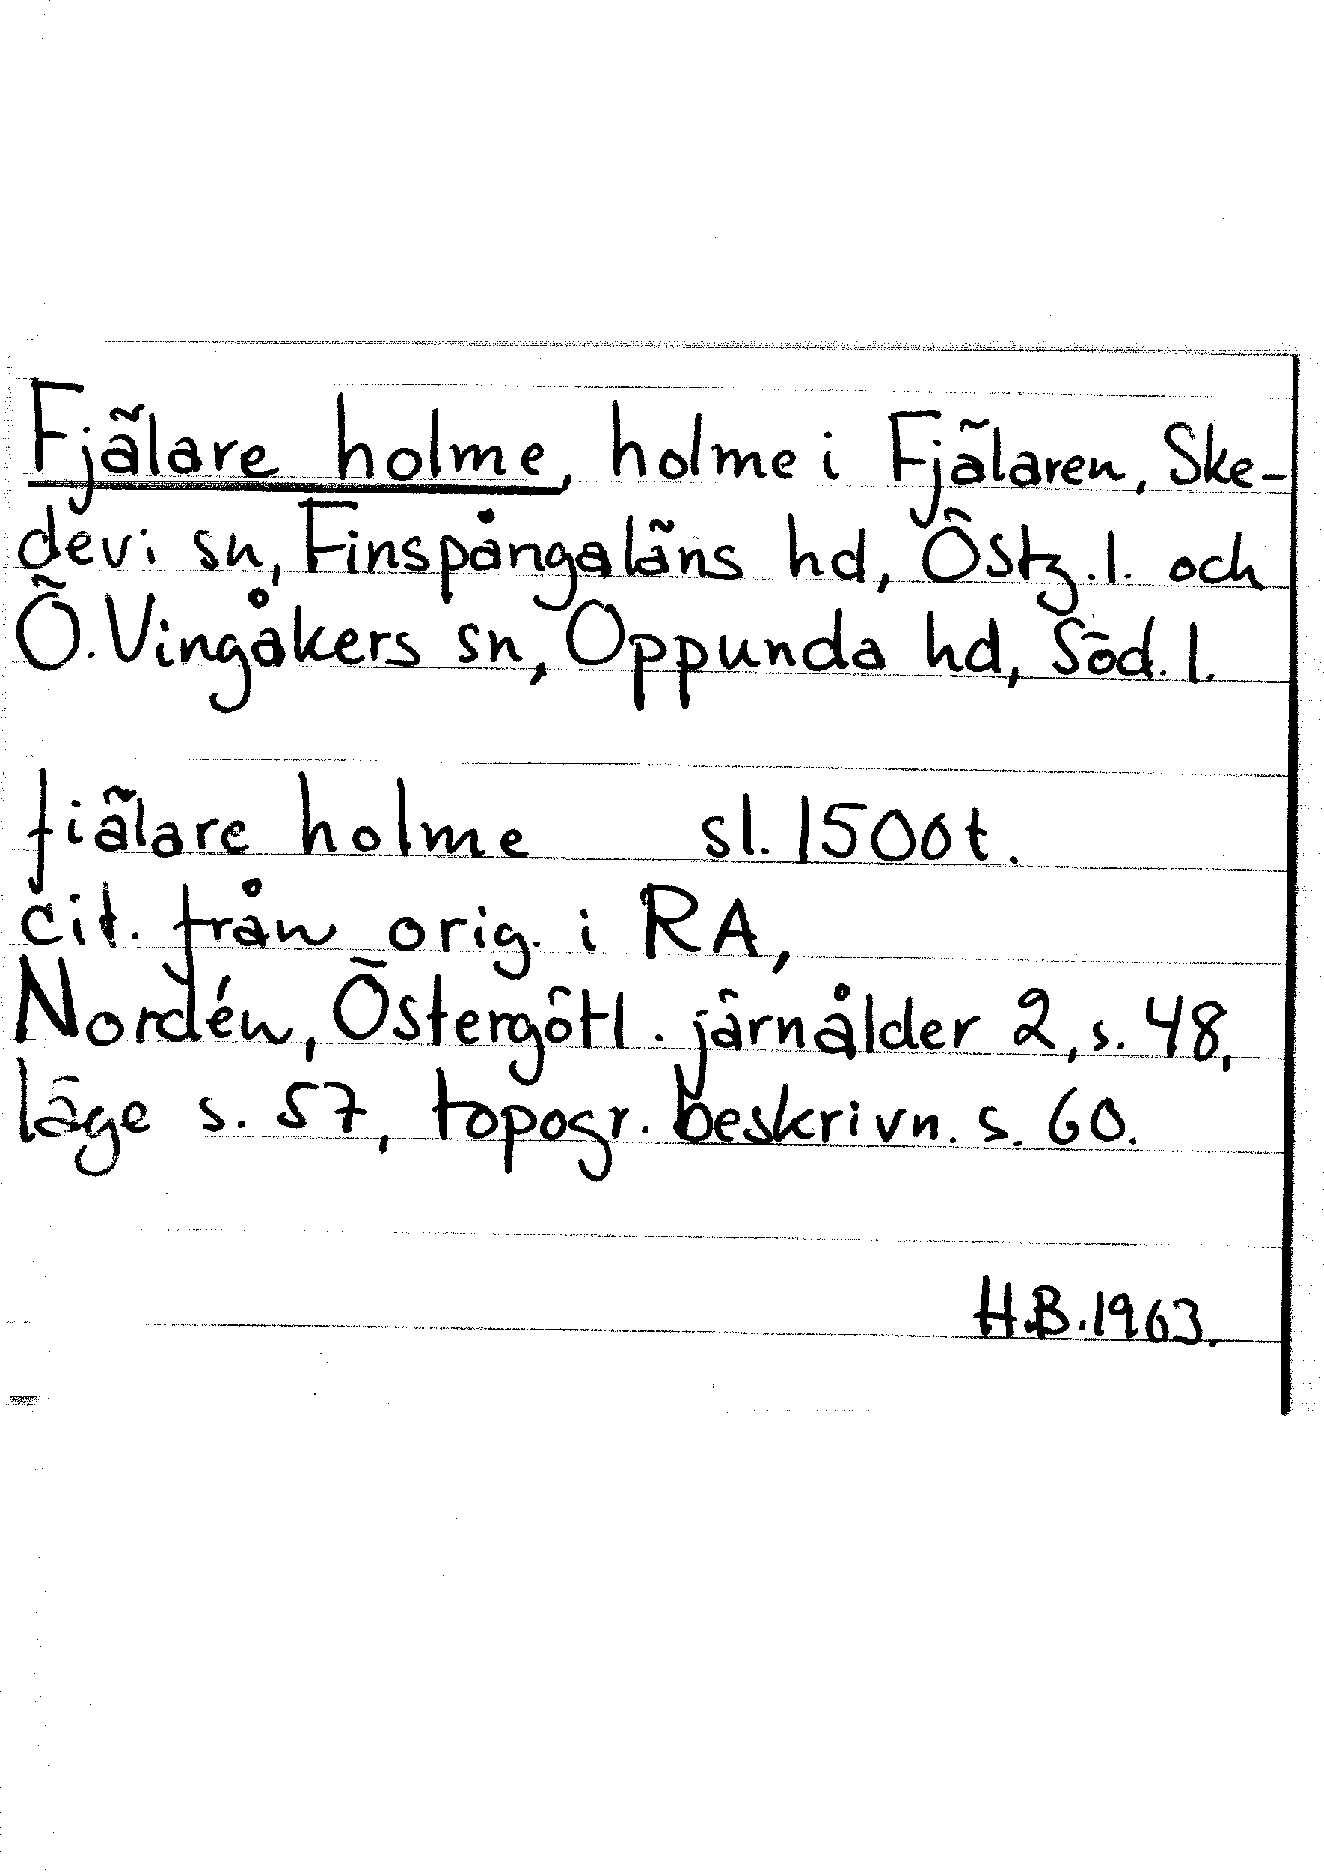 Fjälare holme, holme i Fjälaren, Ske-
devi sn, Finspångaläns hd, Östg.l. och
Ö. Vingåkers sn, Oppunda hd, Söd. l.
fiälare holme sl. 1500t.
cit. från orig. i RA,
Nordén, Östergötl. järnålder 2, s. 48,
läge s. 57, topogr. beskrivn. s. 60.
H.B. 1963.